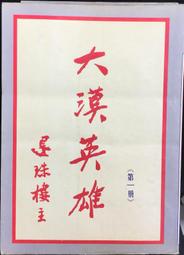 大漠英雄
(第一册)
還珠樓主